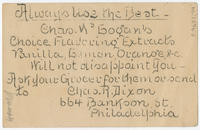 Always Use the Best -
Chas. Mc Gogan's
Choice Flavoring Extracts
Vanilla, Lemon, Orange &c.
Will not disappoint you -
Ask your Grocer for them or send
to Chas. R. Dixon
664 Bankson St.
Philadelphia